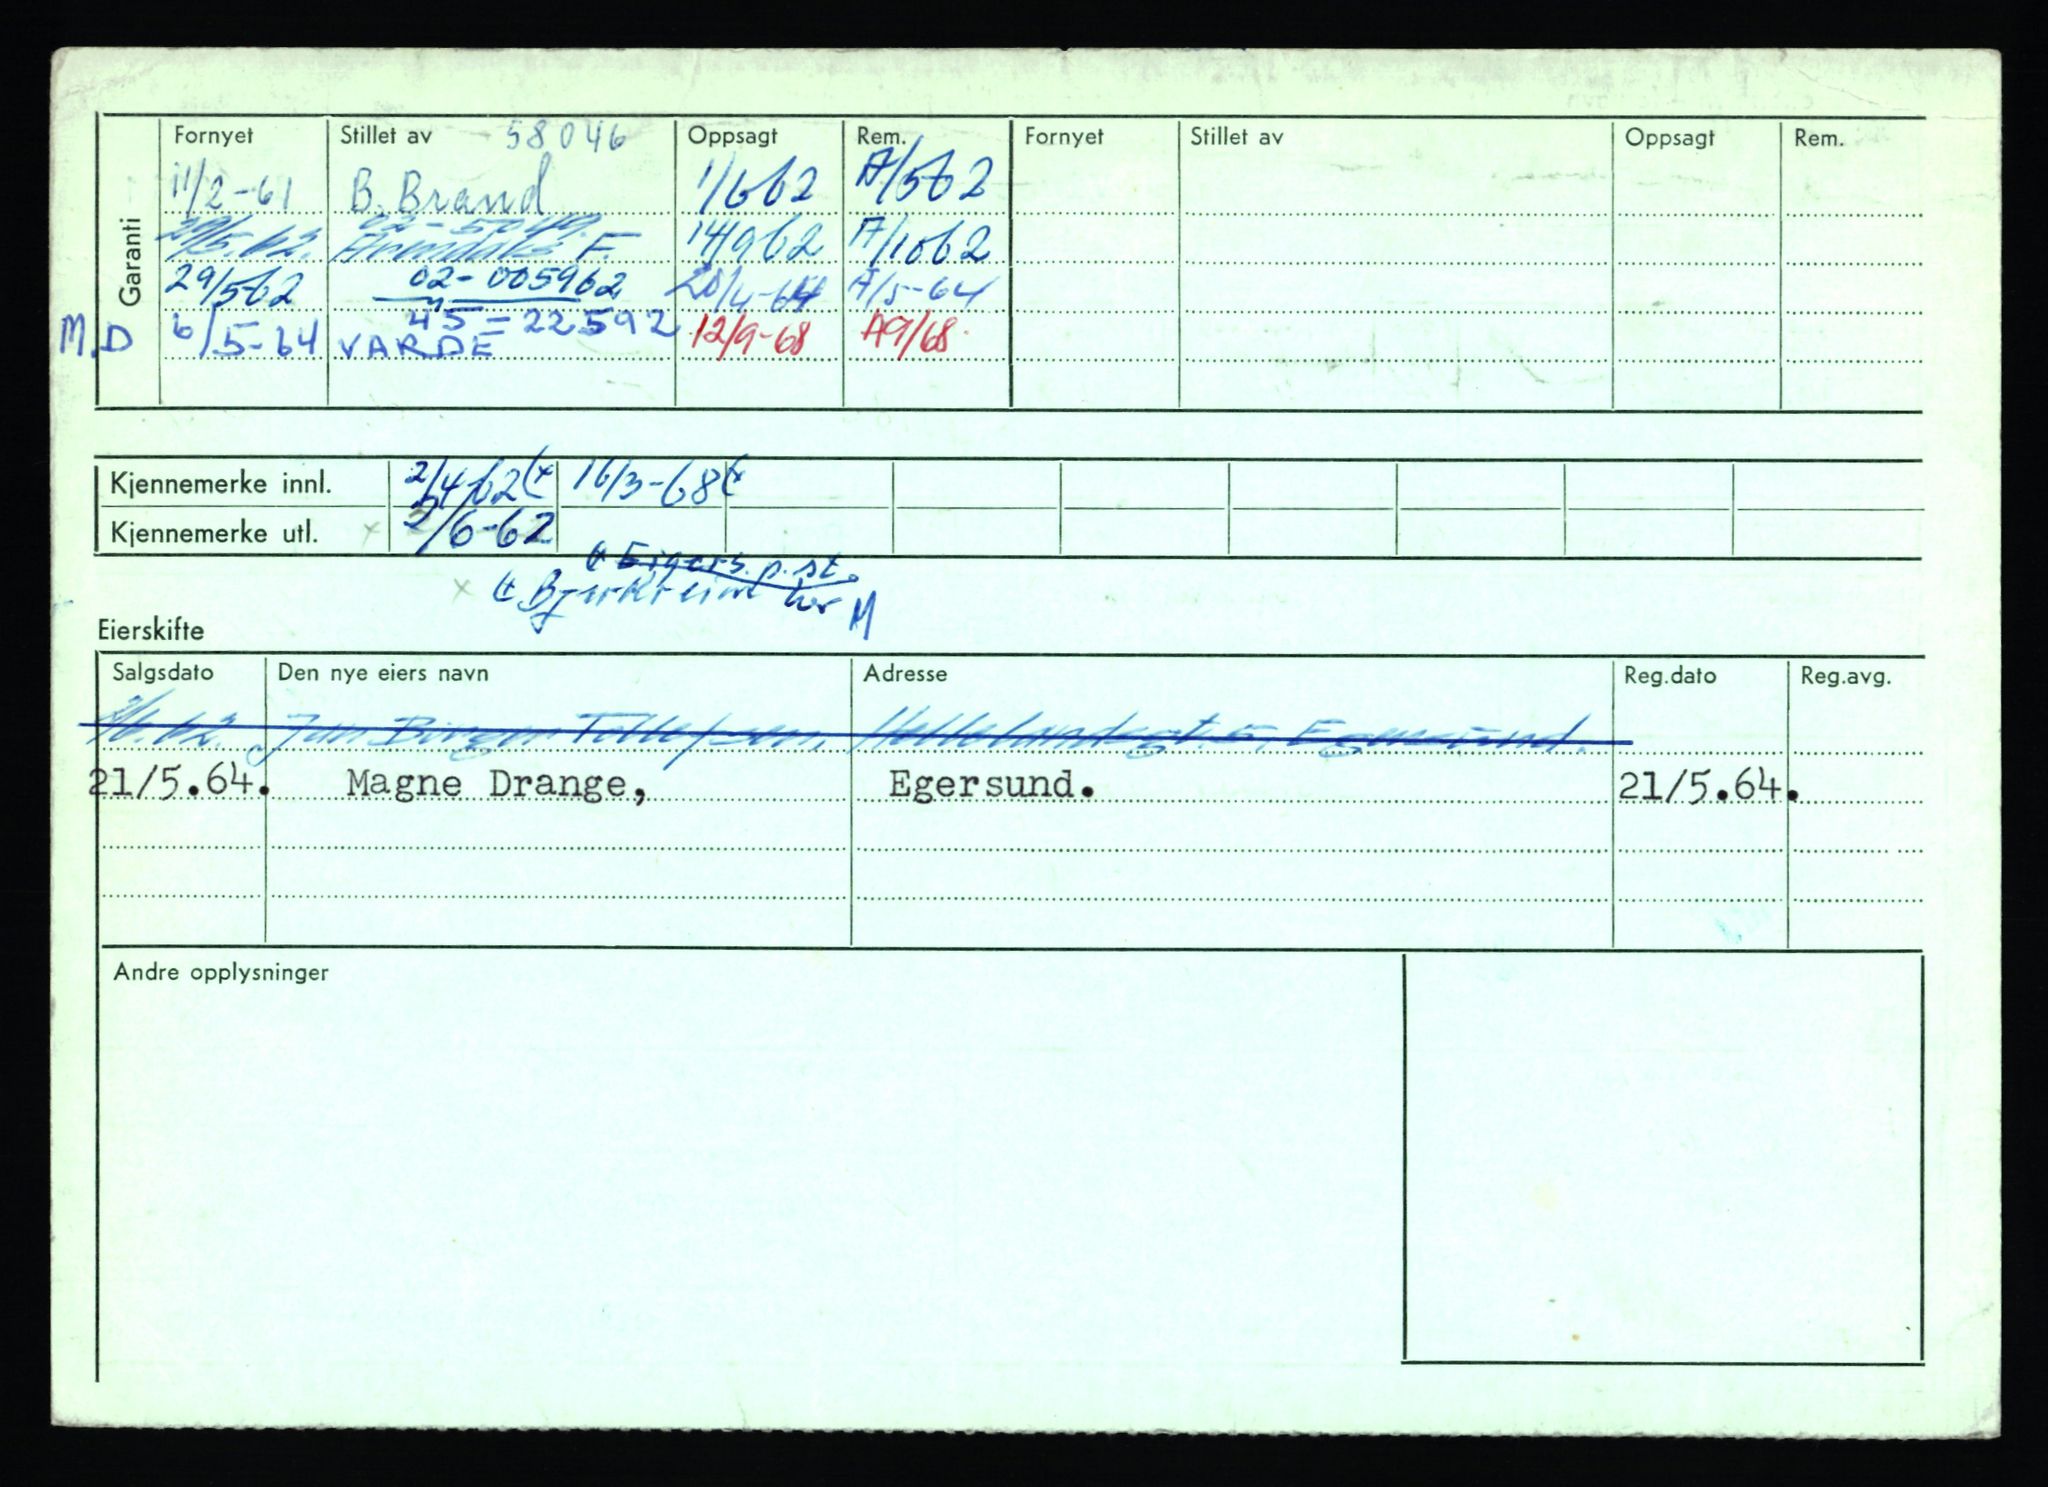 Garanti
Fornyet Stillet av 58046 Oppsagt Rem. Fornyet Stillet av Oppsagt Rem.
11/2-61 B. Brand 1/6 62 A/5 62
29/5.62. Arendals F. 14/9 62 A/10 62
29/5 62 02-005962 20/4-64 A/5-64
45=22592
M.D 6/5-64 VARDE 12/9-68 A9/68.
Kjennemerke innl. 2/4-62 (x 16/3-68 (x
Kjennemerke utl. x 2/6-62
Eigers. p. st.
x Bjerkreim her M
Eierskifte
Salgsdato Den nye eiers navn Adresse Reg.dato Reg.avg.
Jan Birger Tollefsen, Hellelandsgt. 5, Egersund.
21/5.64. Magne Drange, Egersund. 21/5.64.
Andre opplysninger